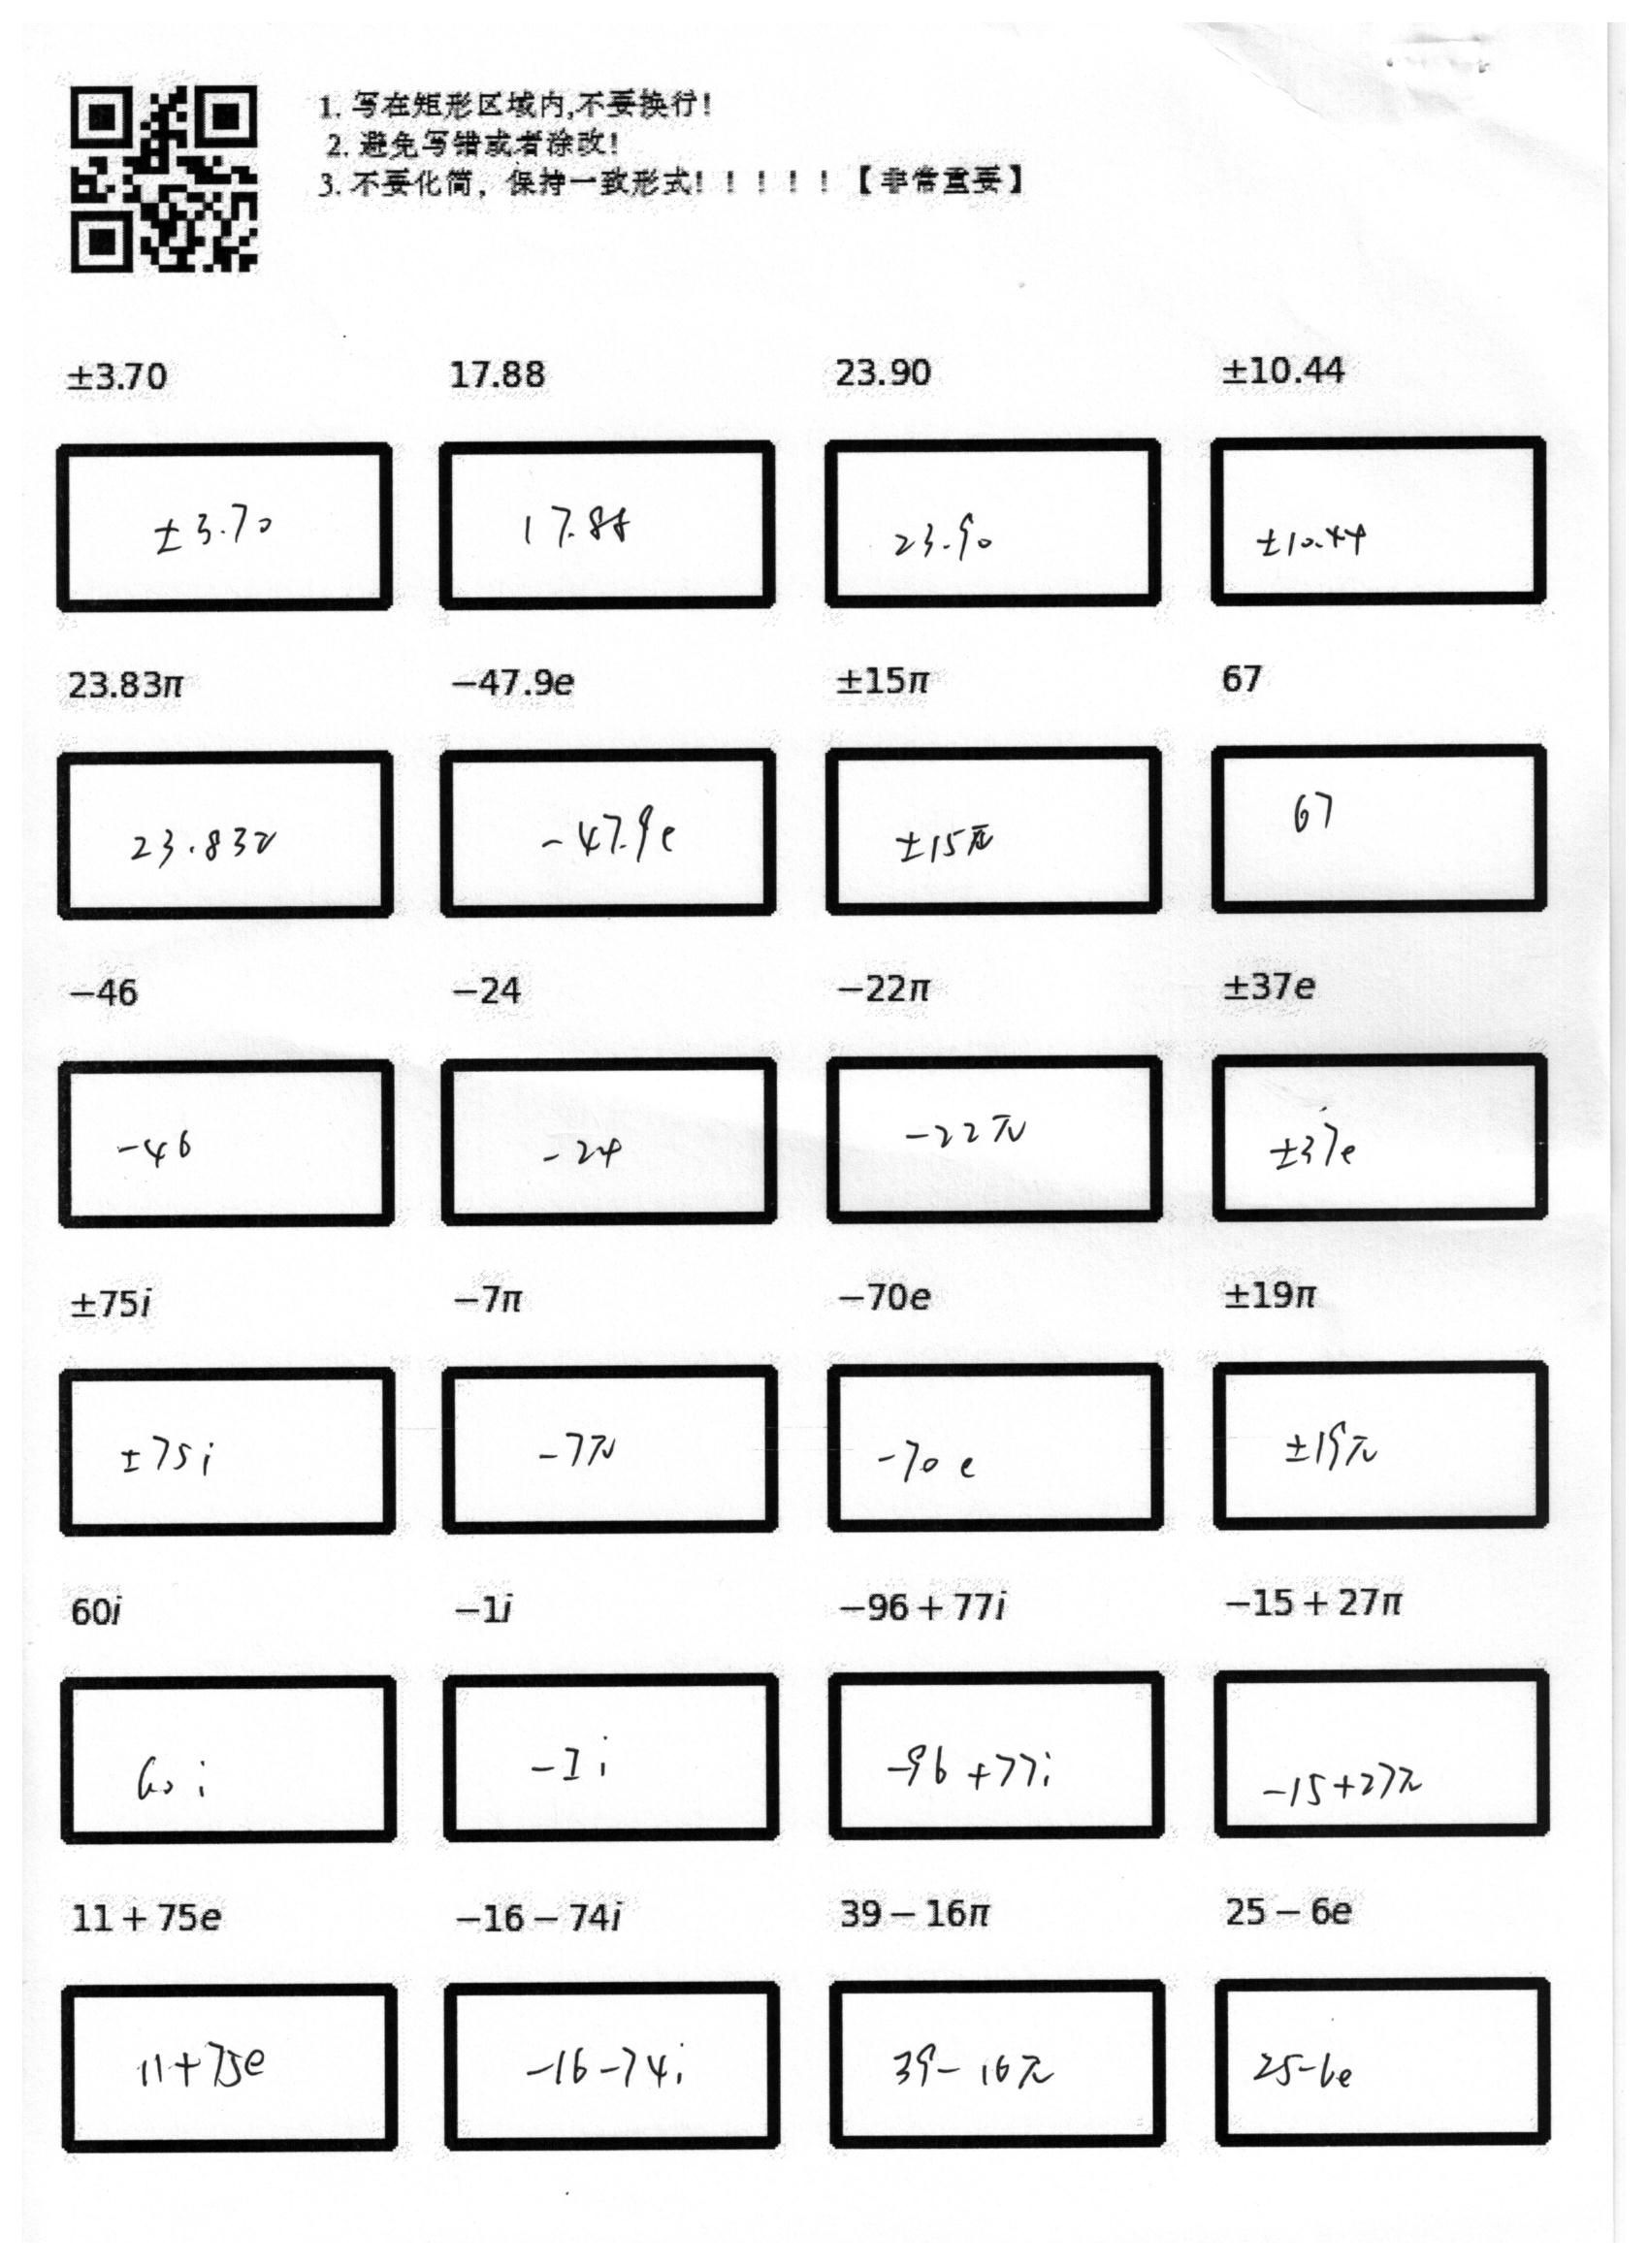 1. 写在矩形区域内,不要换行!
2. 避免写错或者涂改!
3. 不要化简，保持一致形式!！！！！【非常重要】
±3.70 17.88 23.90 ±10.44
±3.70 17.88 23.90 ±10.44
23.83π −47.9e ±15π 67
23.83π -47.9e ±15π 67
−46 −24 −22π ±37e
-46 -24 -22π ±37e
±75i −7π −70e ±19π
±75i -7π -70e ±19π
60i −1i −96+77i −15+27π
60i -1i -96+77i -15+27π
11+75e −16−74i 39−16π 25−6e
11+75e -16-74i 39-16π 25-6e